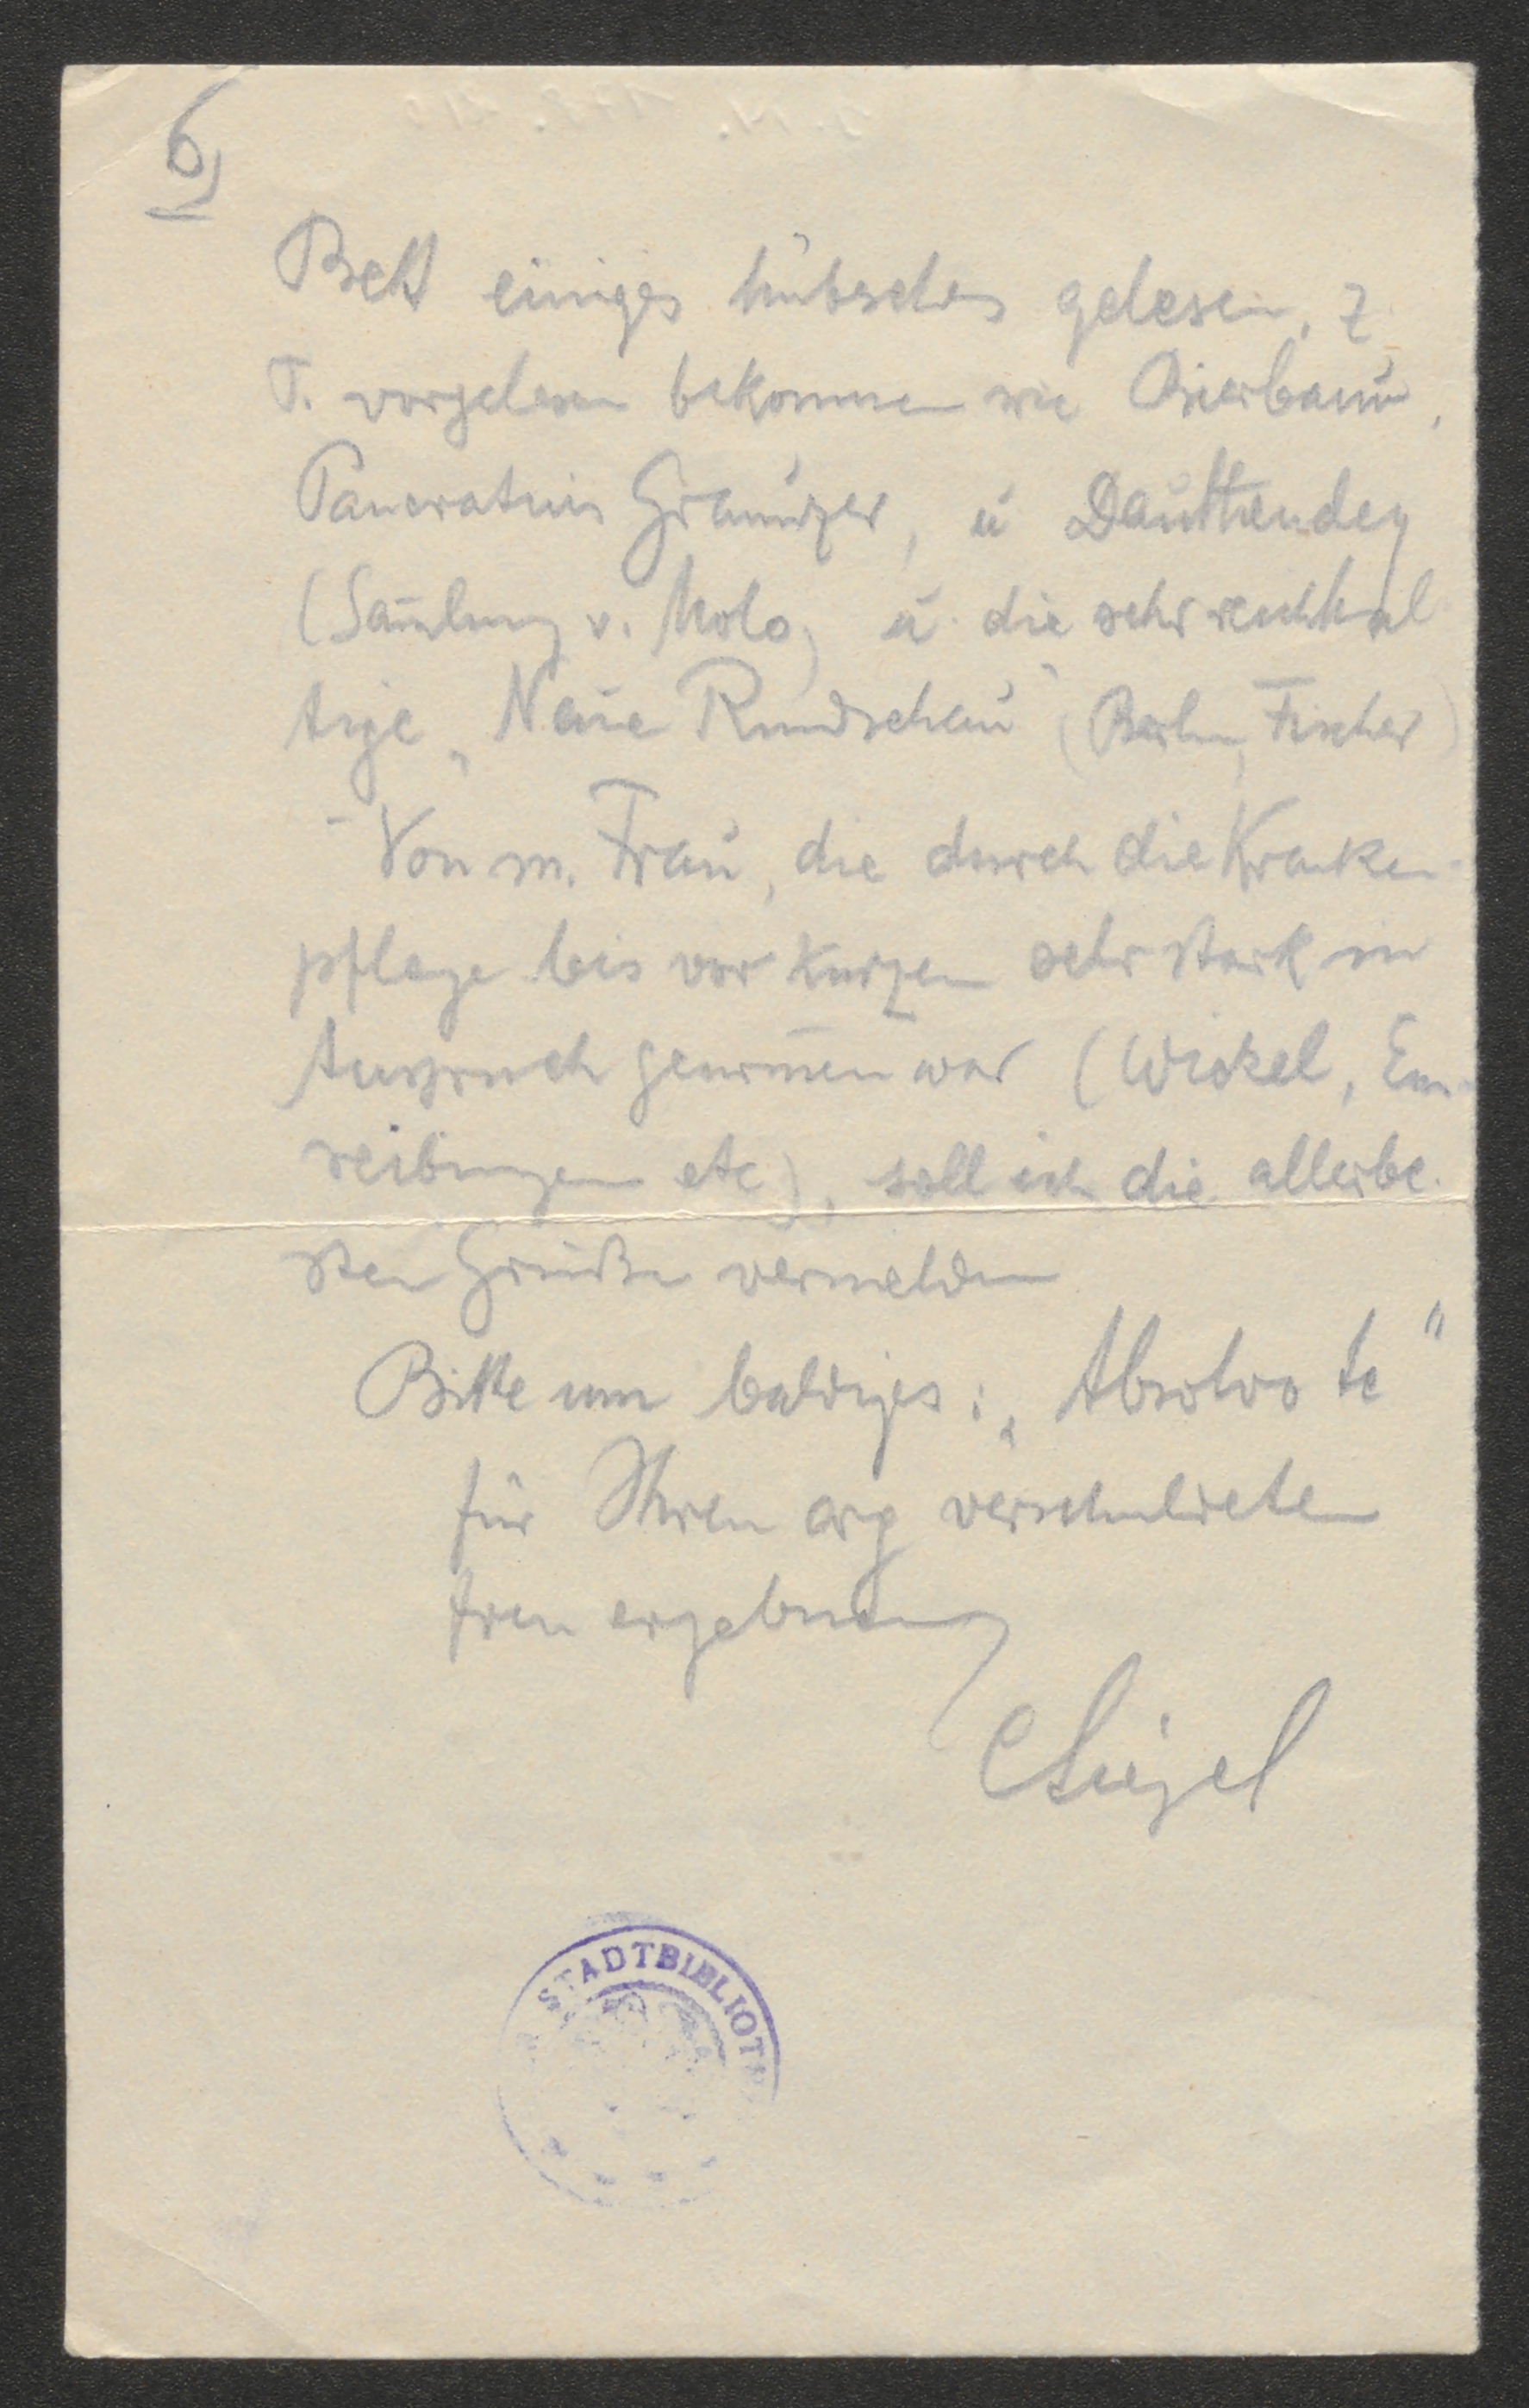 6)
Bett einiges hübsches gelesen, z
T. vorgelesen bekommen wie Bierbaum,
Pancratius Graunzer, u Dauthendey
(Sam̄lung v. Molo) u. die sehr reichhal
tige „Neue Rundschau" (Berlin, Fischer)
- Von m. Frau, die durch die Kranken-
pflege bis vor kurzem sehr stark in
Anspruch genom̄en war (Wickel, Ein-
reibungen etc), soll ich die allerbe-
sten Grüße vermelden
Bitte um baldiges: „Absolvo te"
für Ihren arg verschuldeten
treu ergebenen
Siegel
STADTBIBLIOT